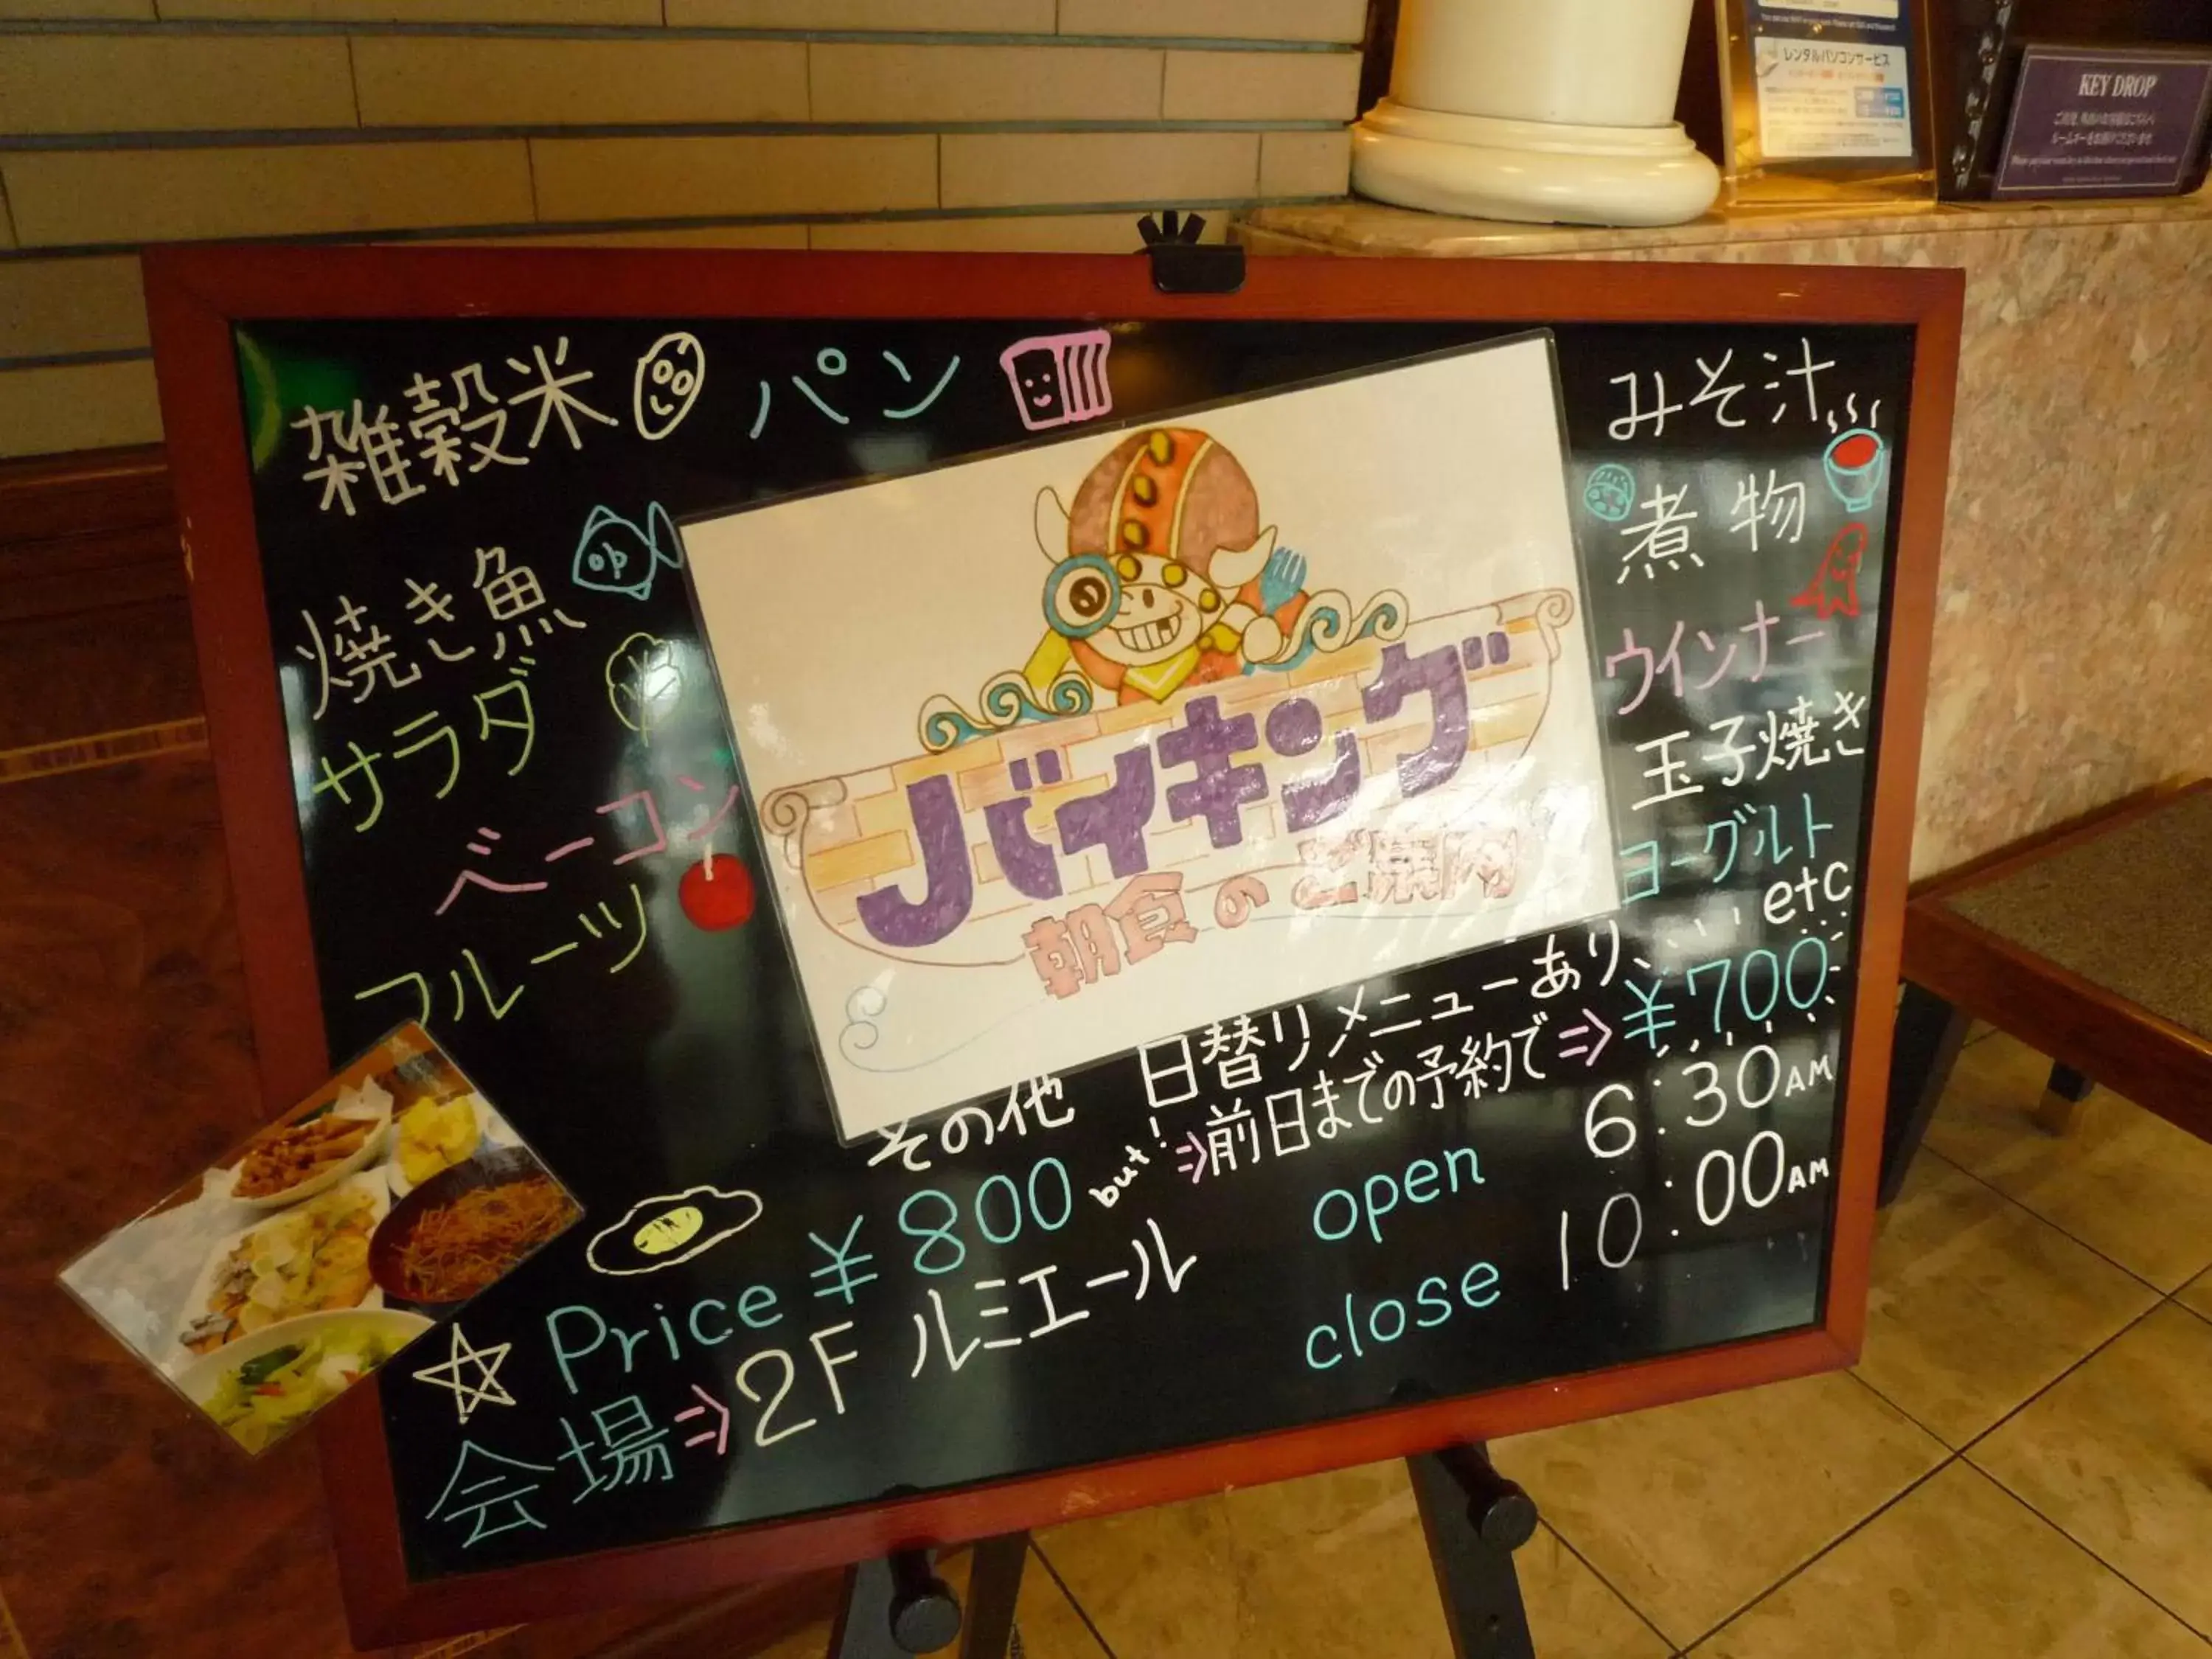 雑穀米
パン
焼き魚
サラダ
ベーコン
フルーツ
バイキング
朝食のご案内
みそ汁
煮物
ウインナー
玉子焼き
ヨーグルト
etc
その他 日替りメニューあり、
Price ¥800 but! ⇒前日までの予約で⇒¥700
会場⇒2F ルミエール
open 6:30AM
close 10:00AM
レンタルパソコンサービス
KEY DROP